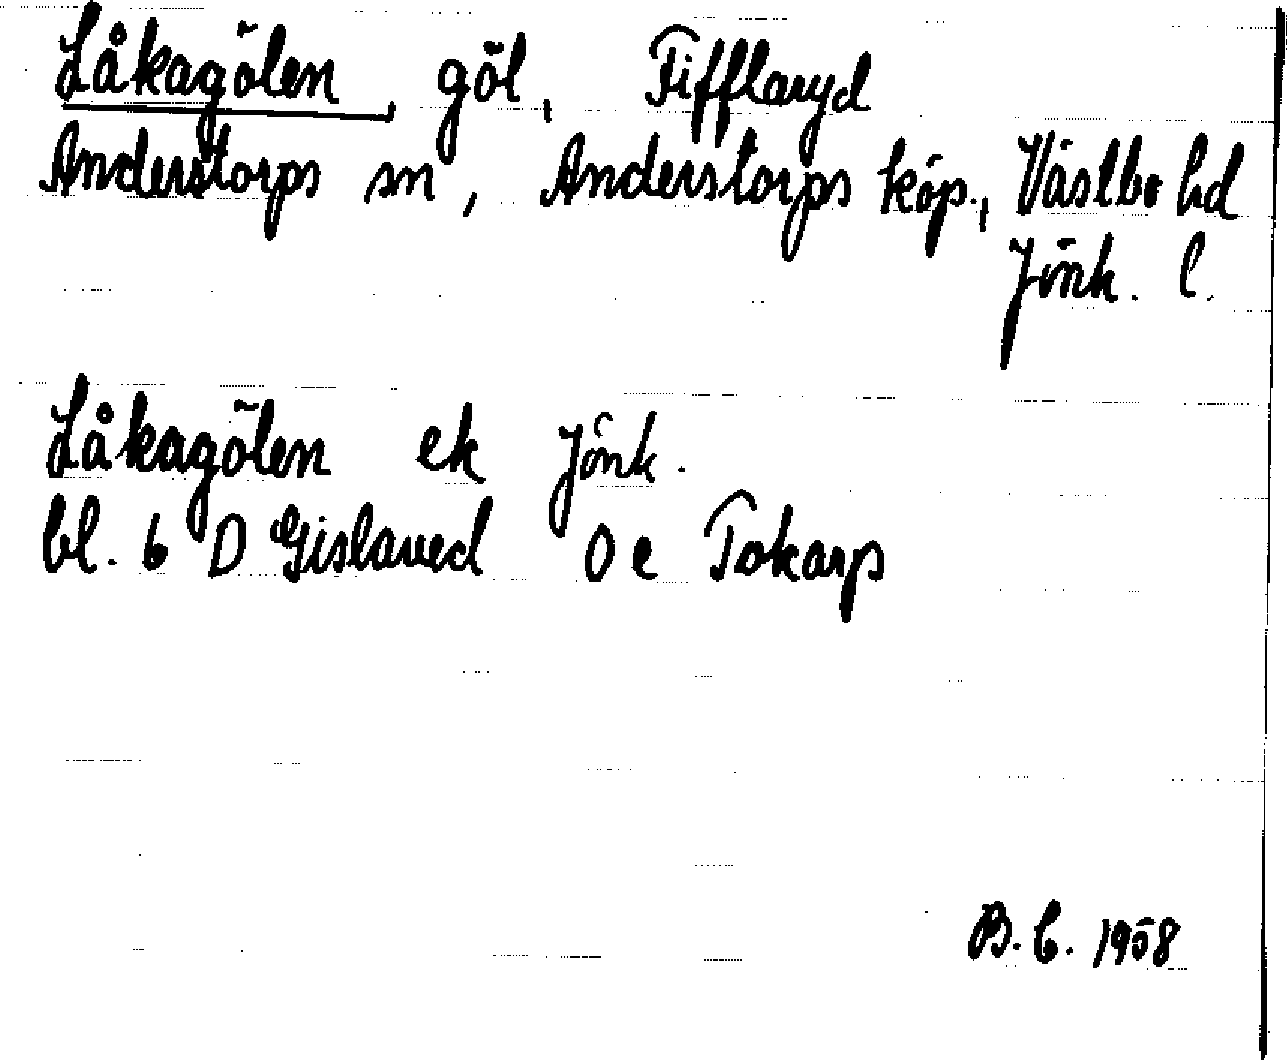 Låkagölen, göl, Fifflaryd
Anderstorps sn, Anderstorps köp., Västbo hd
Jönk. l.
Låkagölen ek Jönk.
bl. 6 D Gislaved 0 e Tokarp
B.C. 1958